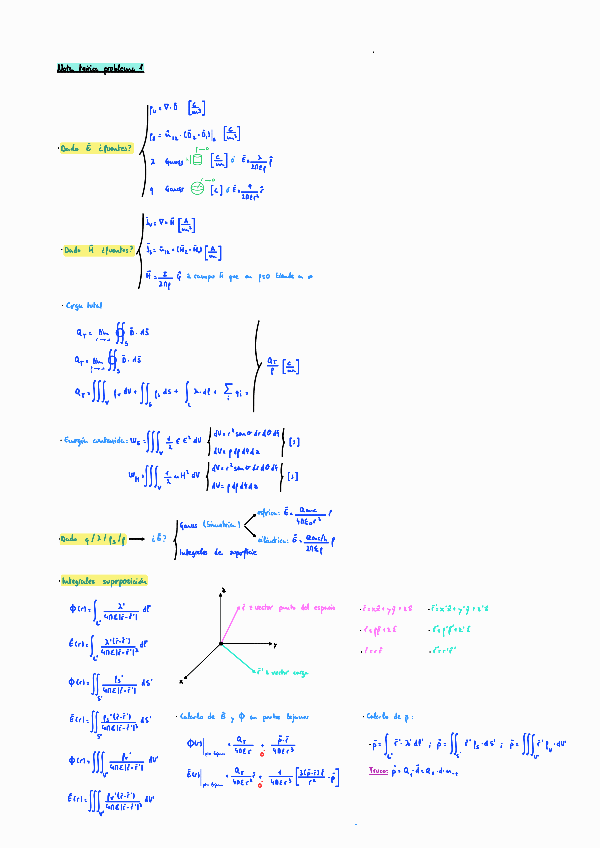 Nota teórica problema 1
· Dado Ē ¿fuentes?
ρv = ∇·D̄ [C/m³]
ρs = n̂₁₂·(D̄₂-D̄₁)|s [C/m²]
λ Gauss [C/m] ó Ē = λ/(2περ) ρ̂
q Gauss [C] ó Ē = q/(4πεr²) r̂
· Dado H̄ ¿fuentes?
J̄v = ∇×H̄ [A/m²]
J̄s = n̂₁₂×(H̄₂-H̄₁) [A/m]
H̄ = I/(2πρ) φ̂ campo H̄ que en ρ→0 tiende a ∞
· Carga total
Q_T = lim ∯s D̄·dS̄
Q_T = lim ∯s D̄·dS̄
Q_T = ∭v ρv dV + ∬s ρs dS + ∫L λ·dl + Σi qi =
Q_T/ℓ [C/m]
· Energía contenida: W_E = ∭v 1/2 ε E² dV
dV = r² sen θ dr dθ dφ
dV = ρ dρ dφ dz
[J]
W_H = ∭v 1/2 μ H² dV
dV = r² sen θ dr dθ dφ
dV = ρ dρ dφ dz
[J]
· Dado q/λ/ρs/ρ → ¿Ē?
Gauss (Simetría)
esférica: Ē = Qenc/(4πε₀r²) r̂
cilíndrica: Ē = Qenc/h/(2περ) ρ̂
Integrales de superficie
· Integrales superposición
Φ(r) = ∫L' λ'/(4πε|r̄-r̄'|) dl'
Ē(r) = ∫L' λ'(r̄-r̄')/(4πε|r̄-r̄'|³) dl'
Φ(r) = ∬s' ρs'/(4πε|r̄-r̄'|) dS'
Ē(r) = ∬s' ρs'(r̄-r̄')/(4πε|r̄-r̄'|³) dS'
Φ(r) = ∭v' ρv'/(4πε|r̄-r̄'|) dV'
Ē(r) = ∭v' ρv'(r̄-r̄')/(4πε|r̄-r̄'|³) dV'
z
r̄ ≡ vector punto del espacio
y
r̄' ≡ vector carga
x
· r̄ = xx̂ + yŷ + zẑ
· r̄' = x'x̂ + y'ŷ + z'ẑ
· r̄ = ρρ̂ + zẑ
· r̄' = ρ'ρ̂' + z'ẑ
· r̄ = r r̂
· r̄' = r' r̂'
· Calculo de Ē y Φ en puntos lejanos
Φ(r̄) = Q_T/(4πεr) + p̄·r̄/(4πεr³)
Ē(r) = Q_T/(4πεr²) r̂ + 1/(4πεr³) [3(p̄·r̄)r̄/r² - p̄]
· Calculo de p̄ :
· p̄ = ∫L' r̄'·λ' dl' ; p̄ = ∬s' r̄' ρs·dS' ; p̄ = ∭v' r̄' ρv·dV'